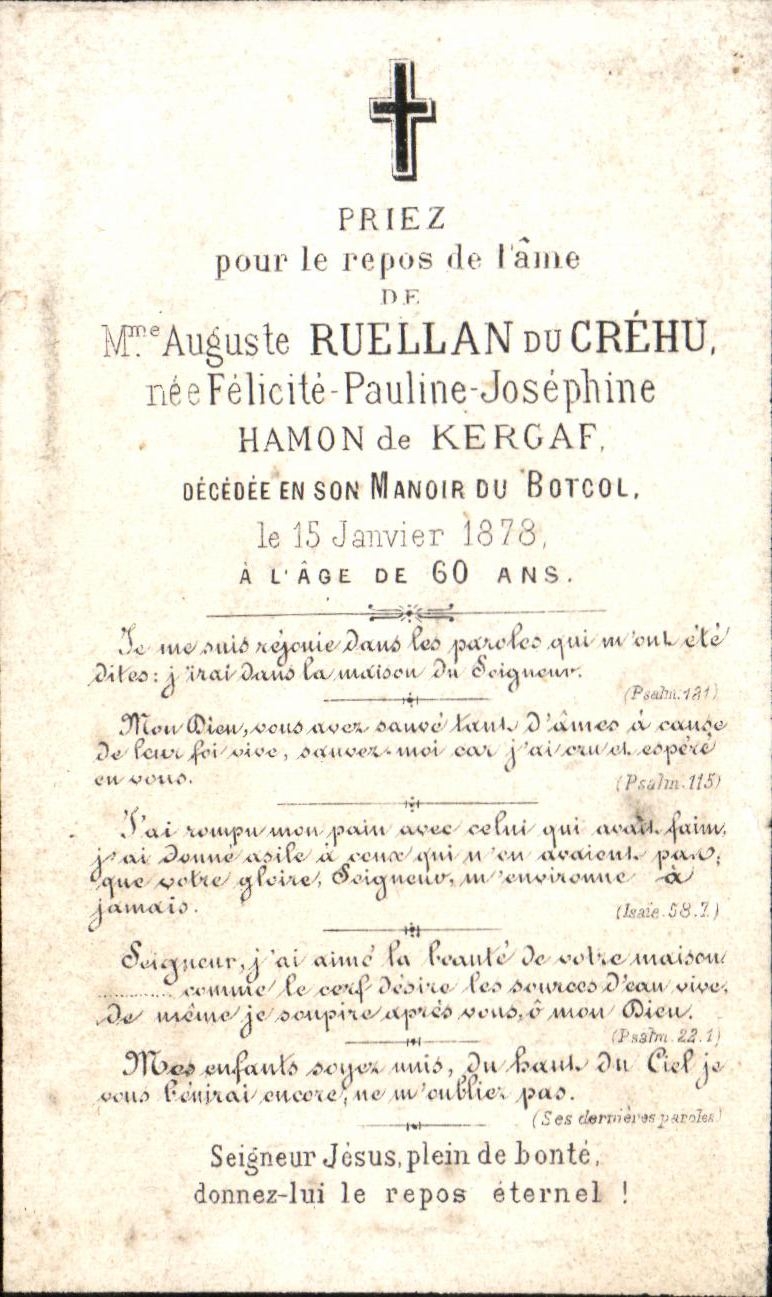 PRIEZ
pour le repos de l'âme
DE
Mme Auguste RUELLAN DU CRÉHU,
née Félicité-Pauline-Joséphine
HAMON de KERGAF,
DÉCÉDÉE EN SON MANOIR DU BOTCOL,
le 15 Janvier 1878,
À L'ÂGE DE 60 ANS.
Je me suis réjouie dans les paroles qui m'ont été
dites: j'irai dans la maison du Seigneur.
(Psalm. 121)
Mon Dieu, vous avez sauvé tant d'âmes à cause
de leur foi vive, sauvez-moi car j'ai cru et espéré
en vous.
(Psalm. 115)
J'ai rompu mon pain avec celui qui avait faim,
j'ai donné asile à ceux qui n'en avaient pas;
que votre gloire, Seigneur, m'environne à
jamais.
(Isaïe. 58. 7.)
Seigneur, j'ai aimé la beauté de votre maison
............ comme le cerf désire les sources d'eau vive,
de même je soupire après vous, ô mon Dieu.
(Psalm. 22. 1)
Mes enfants soyez unis, du haut du Ciel je
vous bénirai encore, ne m'oubliez pas.
(Ses dernières paroles)
Seigneur Jésus, plein de bonté,
donnez-lui le repos éternel !